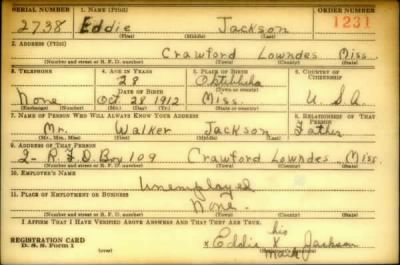 SERIAL NUMBER 1. NAME (Print) ORDER NUMBER
2738 Eddie Jackson 1231
(First) (Middle) (Last)
2. ADDRESS (Print)
Crawford Lowndes Miss.
(Number and street or R. F. D. number) (Town) (County) (State)
3. TELEPHONE 4. AGE IN YEARS 5. PLACE OF BIRTH 6. COUNTRY OF CITIZENSHIP
28 Oktibbeha
DATE OF BIRTH (Town or county)
None Oct 28 1912 Miss. U. S. A.
(Exchange) (Number) (Mo.) (Day) (Yr.) (State or country)
7. NAME OF PERSON WHO WILL ALWAYS KNOW YOUR ADDRESS 8. RELATIONSHIP OF THAT PERSON
Mr. Walker Jackson Father
(Mr., Mrs., Miss) (First) (Middle) (Last)
9. ADDRESS OF THAT PERSON
2- R.F.D. Box 109 Crawford Lowndes Miss.
(Number and street or R. F. D. number) (Town) (County) (State)
10. EMPLOYER'S NAME
Unemployed
11. PLACE OF EMPLOYMENT OR BUSINESS
None.
(Number and street or R. F. D. number) (Town) (County) (State)
I AFFIRM THAT I HAVE VERIFIED ABOVE ANSWERS AND THAT THEY ARE TRUE.
his
REGISTRATION CARD x Eddie X Jackson
D. S. S. Form 1 Mark